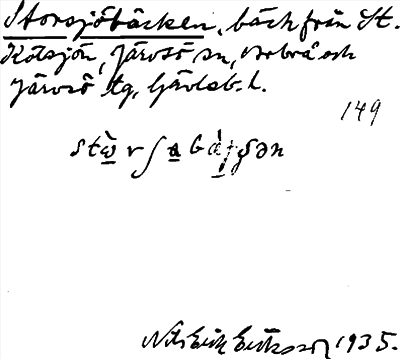 Storsjöbäcken, bäck från St.
Kölsjön, Järvsö sn, Arbrå och
Järvsö tg, Gävleb. l.
149
Nils Erik Eriksson 1935.